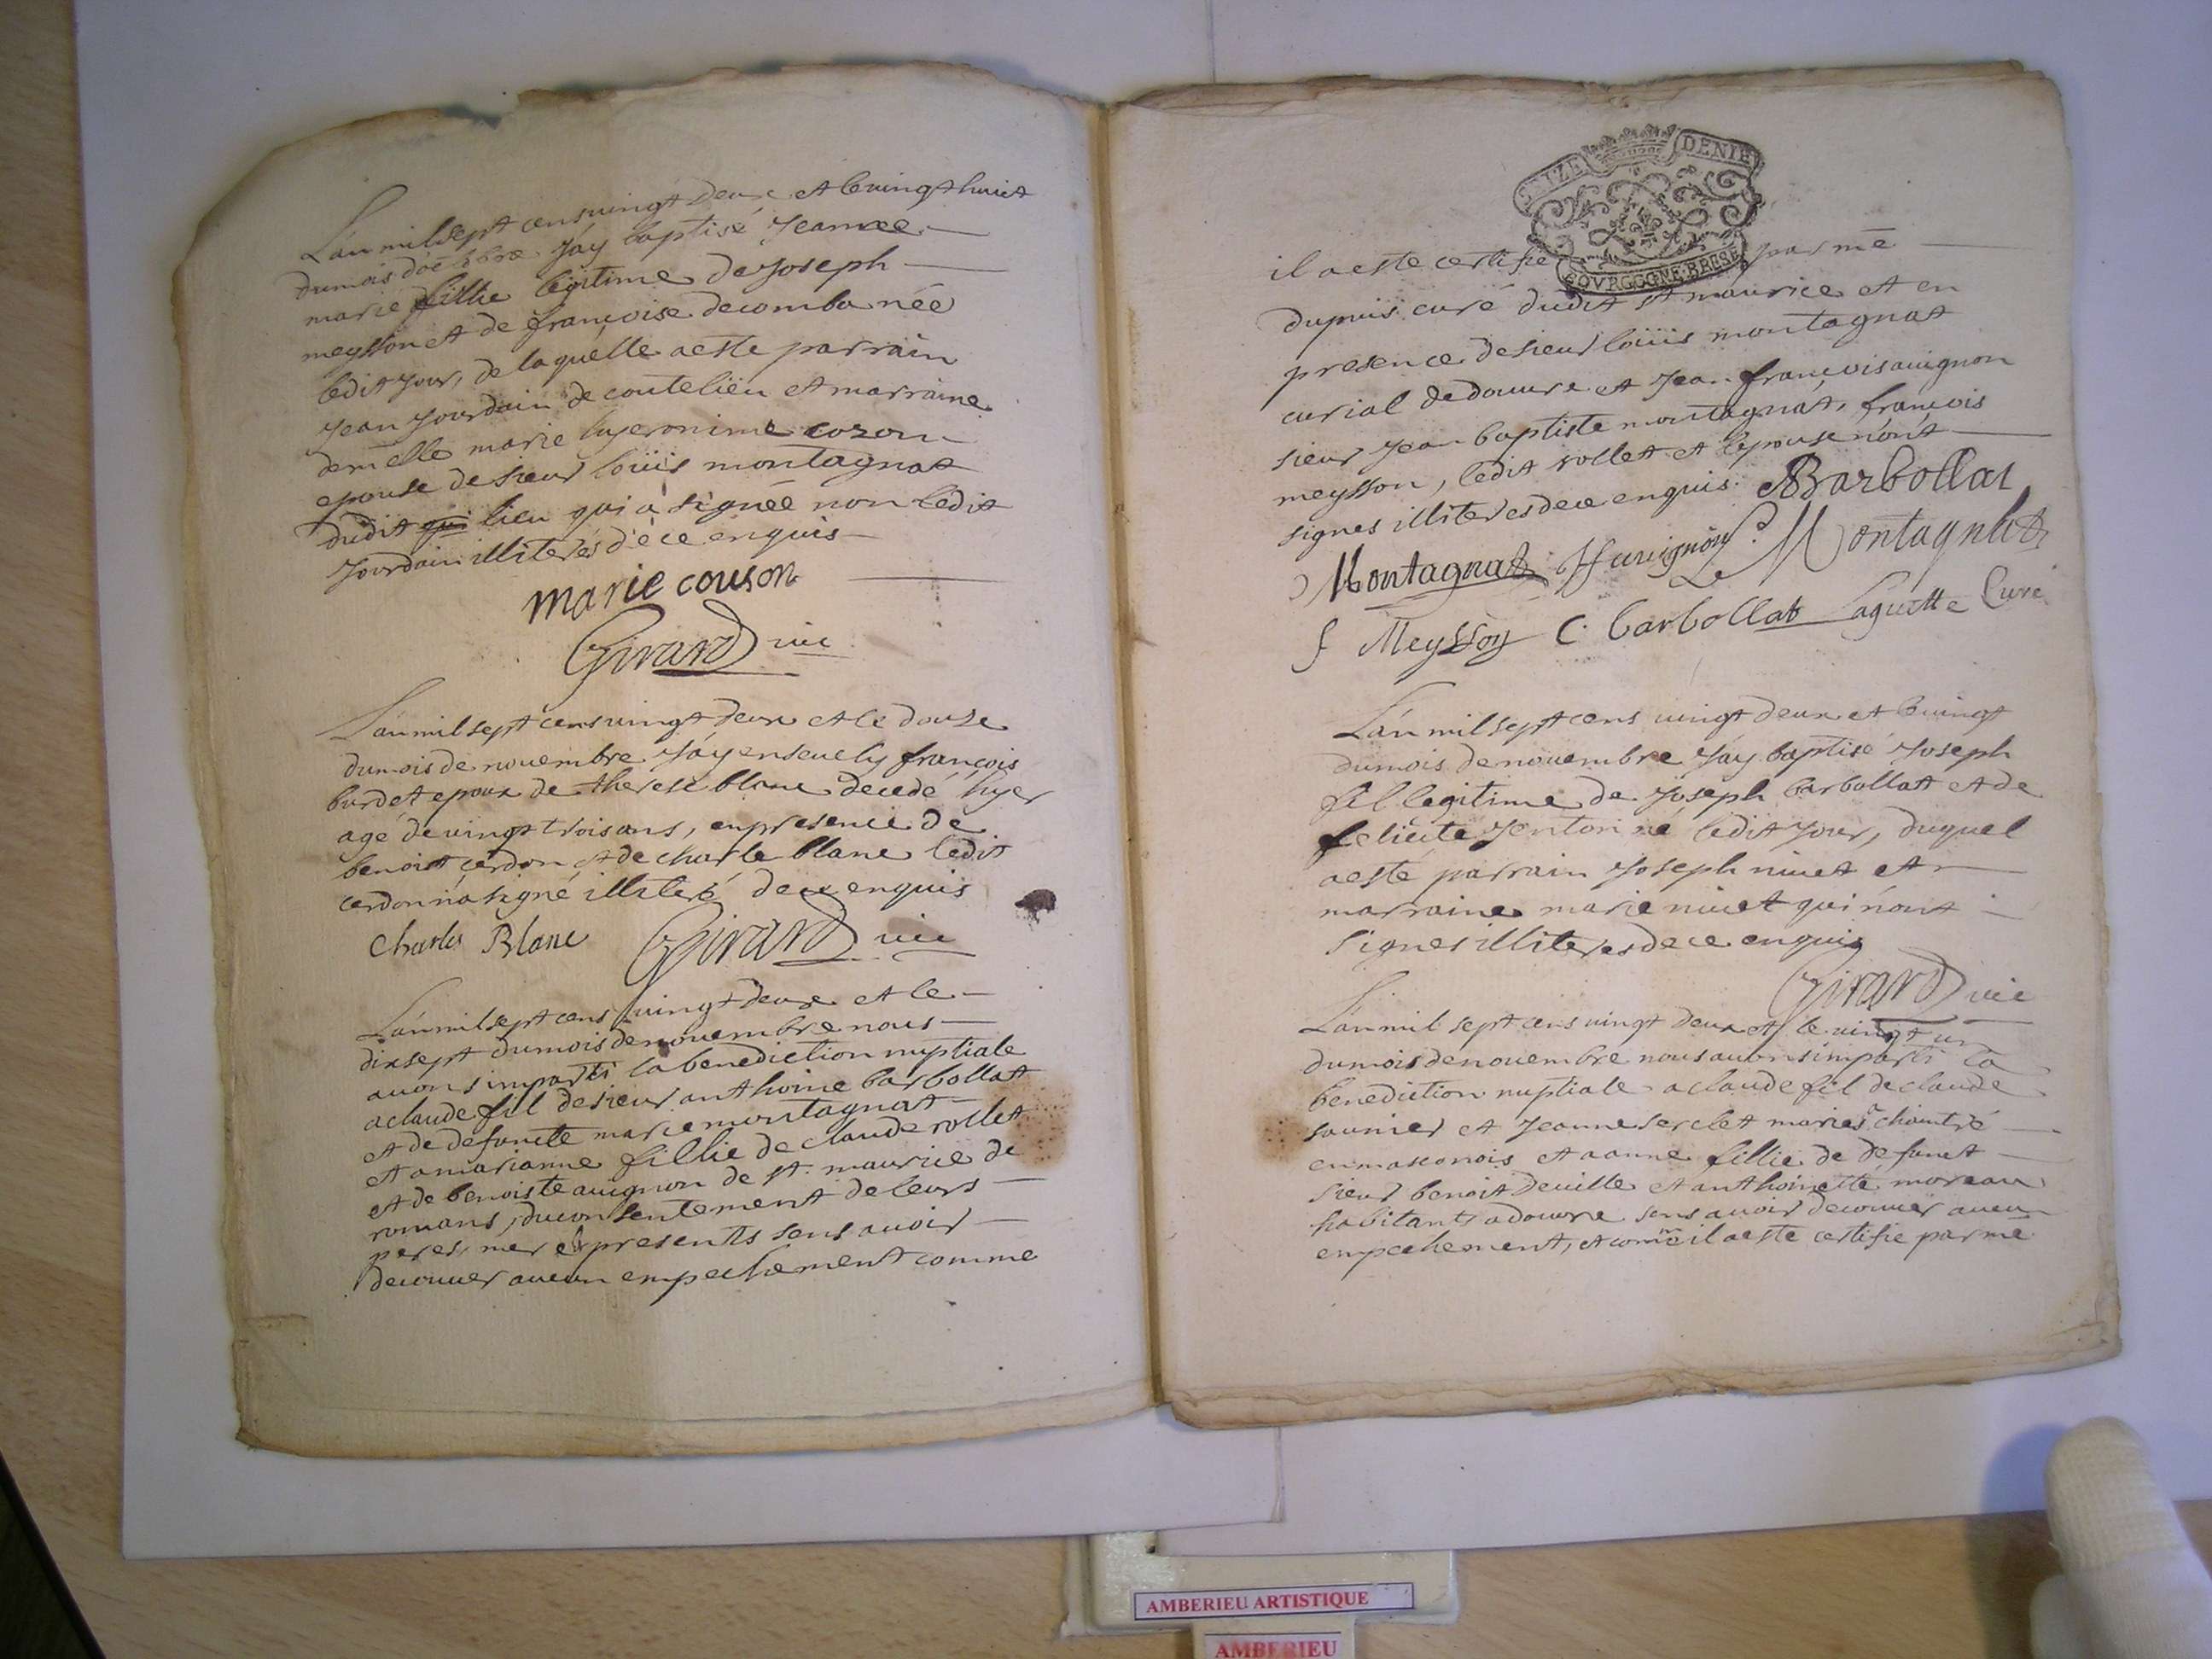 L'an mil sept cens vingt deux et le vingt huict
du mois d'octobre j'ay baptisé jeanne
marie fillie legitime de joseph
meysson et de françoise decomba née
ledit jour, de laquelle a esté parrain
jean jourdain de coutelieu et marraine
demelle marie hyeronime cozon
epouse de sieur loüis montagnat
dudit qui lieu qui a signéé non ledit
jourdain illiterés de ce enquis
marie couson
Girard vic
L'an mil sept cens vingt deux et le douse
du mois de novembre j'ay ensevely françois
burdet epoux de therese blanc decedé hyer
agé de vingt trois ans, en presence de
benoist cerdon et de charle blanc ledit
cerdon n'a signé illiteré de ce enquis
Charles Blanc Girard vic
L'an mil sept cens vingt deux et le
dixsept du mois de novembre nous
avons imparti la benediction nuptiale
a claude fil de sieur anthoine barbollat
et de defuncte marie montagnat
et a marianne fillie de claude rollet
et de benoiste avignon de st. maurice de
romans, du consentement de leurs
peres, mere presents sens avoir
decouver aucun empechement comme
SEIZE DENIE
BOURGOGNE BRESSE
il a este certifie par me
dupuis curé dudit st maurice et en
presence de sieur loüis montagnat
curial de douvre et jean françois avignon
sieur jean baptiste montagnat, françois
meysson, ledit rollet et l'epouse n'ont
signes illiteres de ce enquis. Barbollat
Montagnat Avignon Le Montagnat
f Meysson C. barbollat Laguette Curé
L'an mil sept cens vingt deux et le vingt
du mois de novembre j'ay baptisé joseph
fil legitime de joseph barbollat et de
felicite jenton né ledit jour, duquel
a esté parrain joseph nivet et
marraine marie nivet qui n'ont
signes illiteres de ce enquis
Girard vic
L'an mil sept cens vingt deux et le vingt un
du mois de novembre nous avons imparti la
benediction nuptiale a claude fil de claude
saunier et jeanne serclet maries a chaintré
en masconois et a anne fillie de defunct
sieur benoit deville et anthoinette moreau
habitants a douvre sens avoir decouver aucun
empechement, et comme il a este certifie par me
AMBERIEU ARTISTIQUE
AMBERIEU